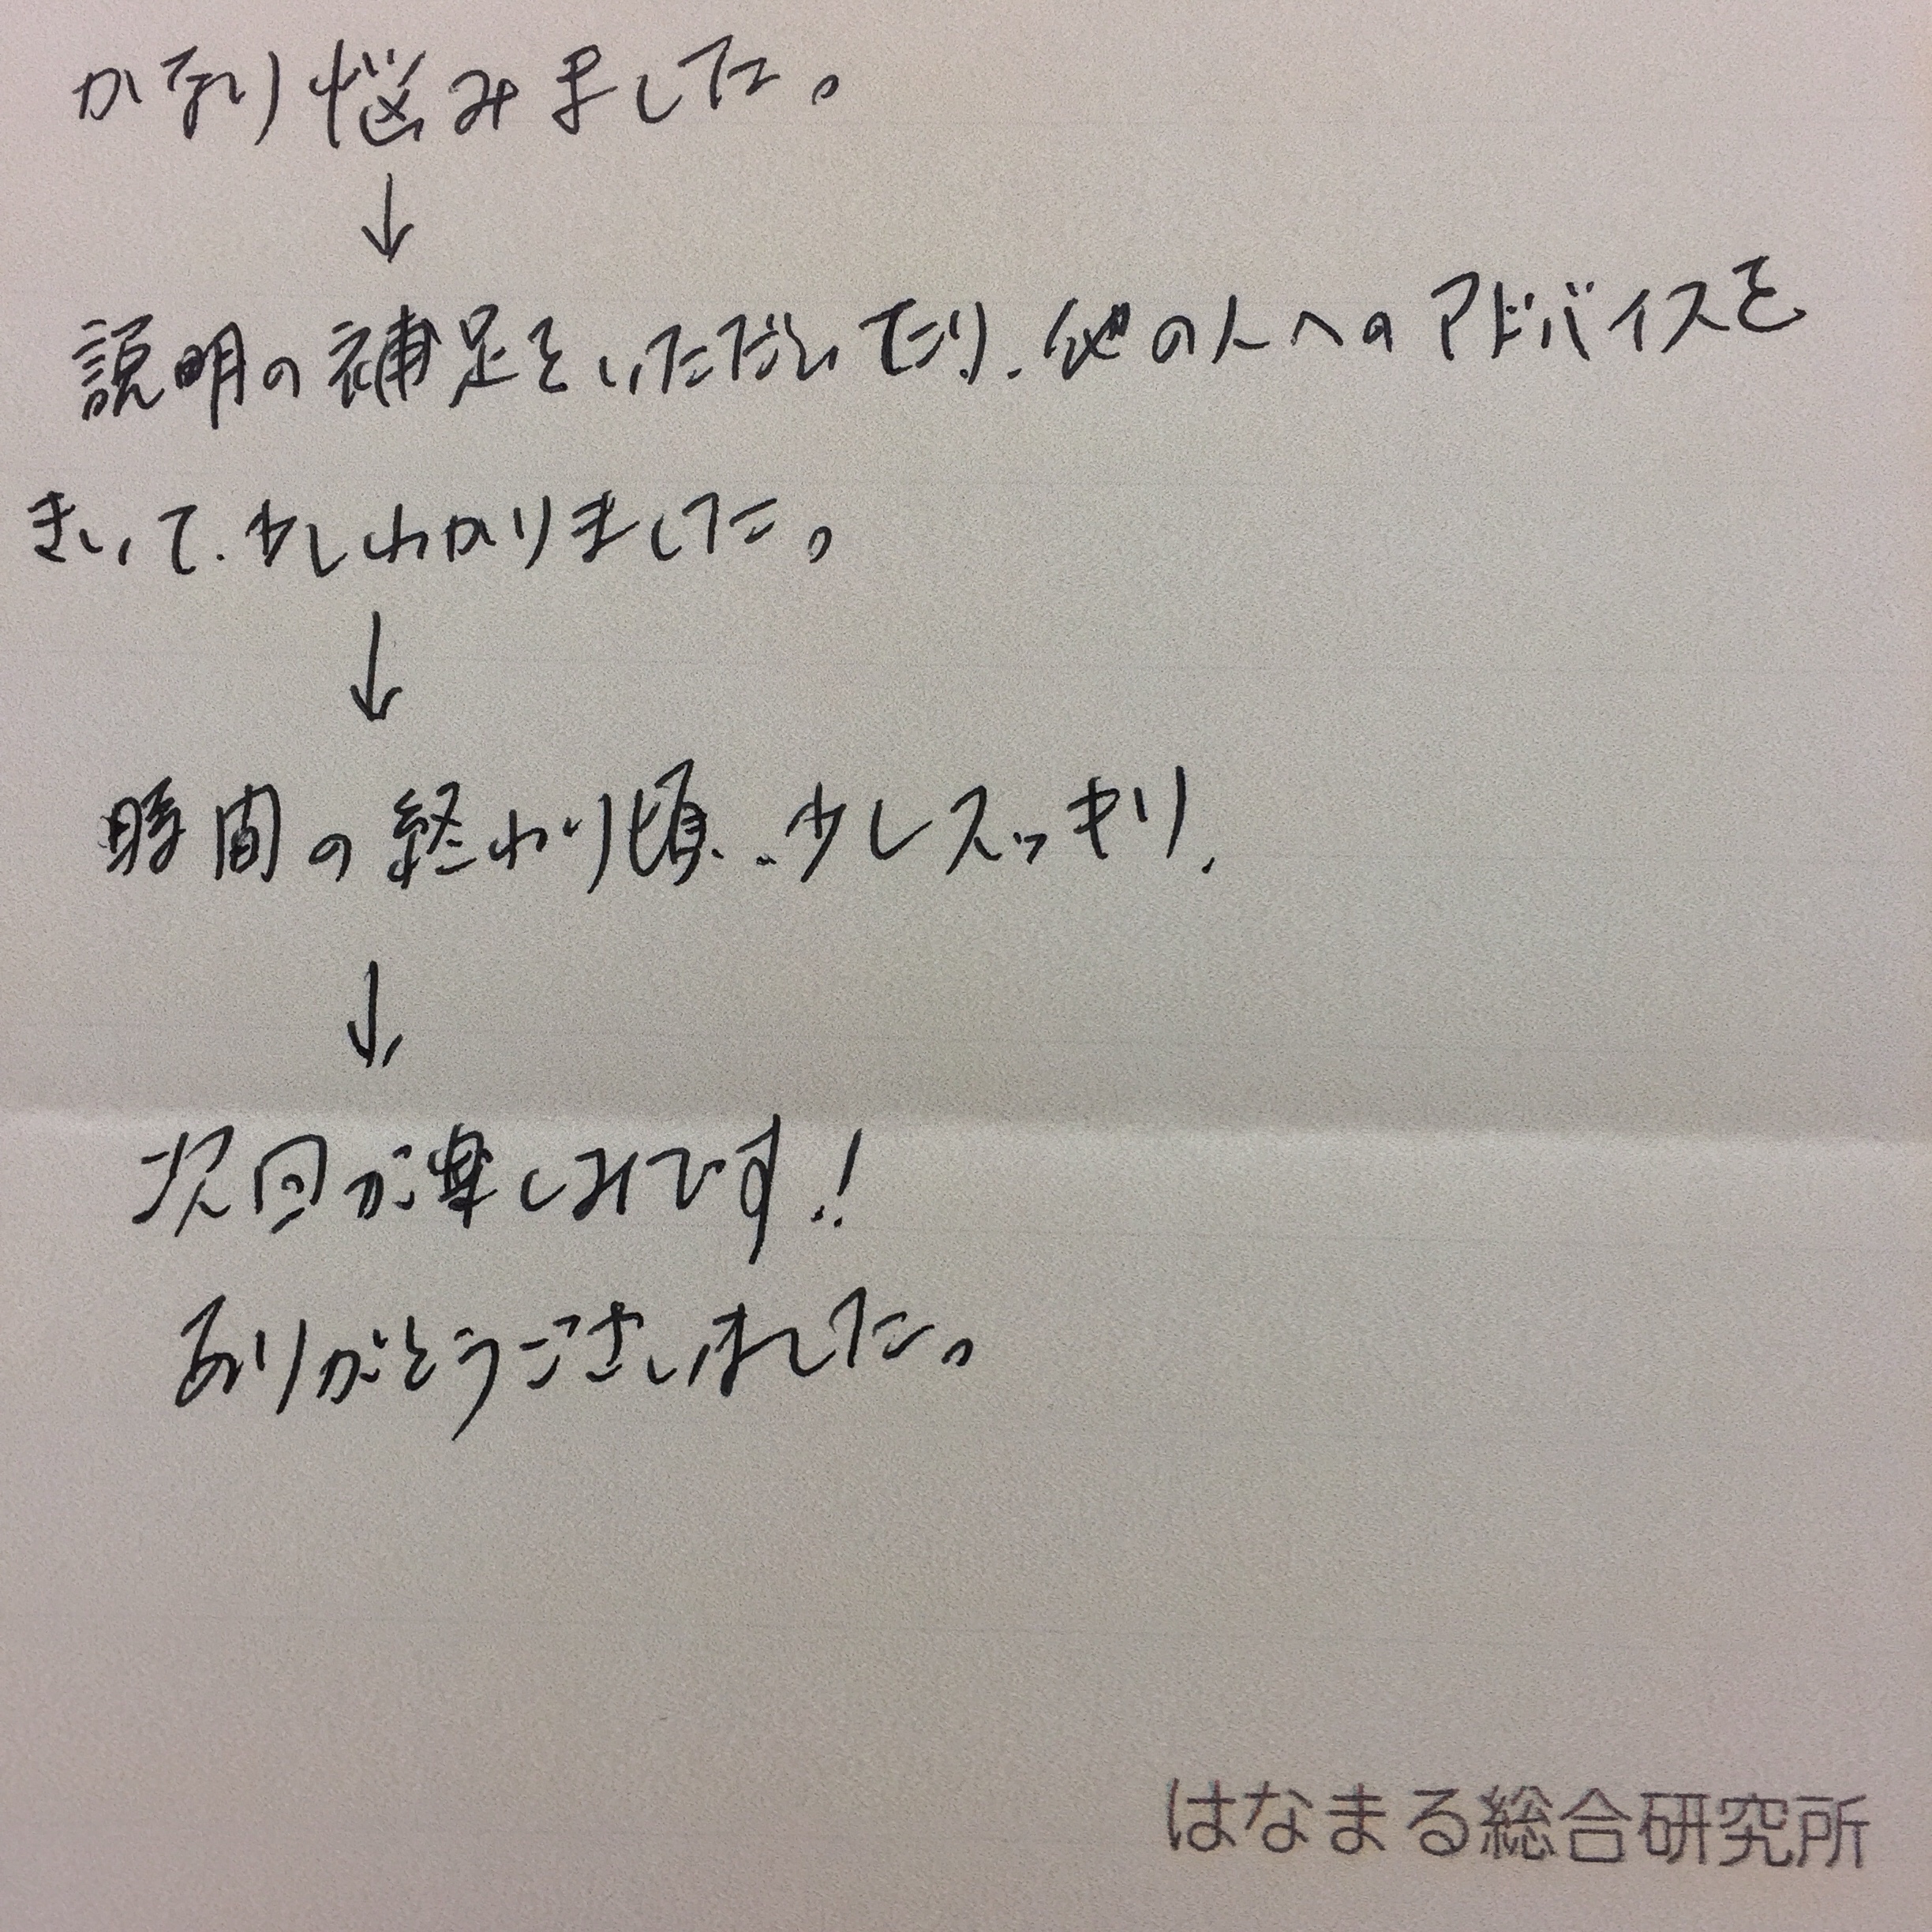 かなり悩みました。
↓
説明の補足をいただいたり、他の人へのアドバイスを
きいて、少しわかりました。
↓
時間の終わり頃、、少しスッキリ、
↓
次回が楽しみです!
ありがとうございました。
はなまる総合研究所